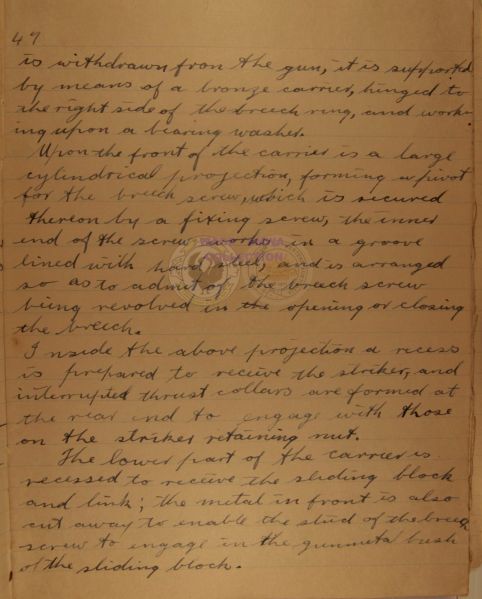 47
is withdrawn from the gun, it is supported
by means of a bronze carrier, hinged to
the right side of the breech ring, and work-
ing upon a bearing washer.
Upon the front of the carrier is a large
cylindrical projection, forming a pivot
for the breech screw, which is secured
thereon by a fixing screw, the inner
end of the screw works in a groove
lined with hard steel, and is arranged
so as to admit of the breech screw
being revolved in the opening or closing
the breech.
Inside the above projection a recess
is prepared to receive the striker, and
interrupted thrust collars are formed at
the rear end to engage with those
on the striker retaining nut.
The lower part of the carrier is
recessed to receive the sliding block
and link; the metal in front is also
cut away to enable the stud of the breech
screw to engage in the gunmetal bush
of the sliding block.
COLLECTION